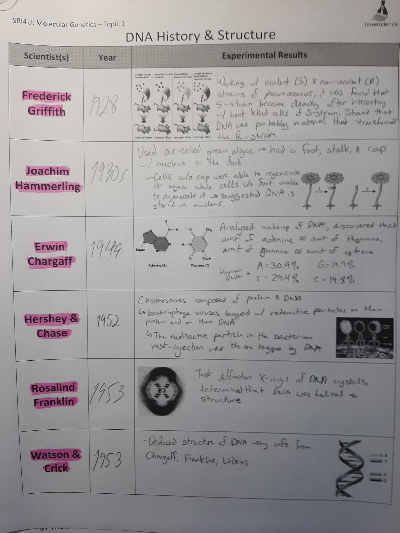 SBI4U: Molecular Genetics – Topic 1
DNA History & Structure
Scientist(s)
Year
Experimental Results
Frederick
Griffith
1928
Working w/ virulent (S) & non-virulent (R)
strains of pneumococcus, it was found that
S-strain became deadly after interacting
w/ heat killed cells of S-strain. Showed that
DNA was probably material that transformed
the R-strain.
Joachim
Hammerling
1930s
Used one-celled green algae → had a foot, stalk, & cap
w/ nucleus in the foot
- Cells w/o cap were able to regenerate
it again while cells w/o foot unable
to regenerate it → suggested DNA is
stored in nucleus
Erwin
Chargaff
1949
Analyzed makeup of DNA, discovered that
amt of adenine = amt of thymine,
amt of guanine = amt of cytosine
Adenine (A)
Thymine (T)
Human DNA =
A = 30.9% G = 19.9%
T = 29.4% C = 19.8%
Hershey &
Chase
1952
Chromosomes composed of protein & DNA
bacteriophage viruses tagged w/ radioactive particles on their
protein and on their DNA
The radioactive particle in the bacterium
post-injection was the one tagged by DNA
Rosalind
Franklin
1953
Took diffraction X-rays of DNA crystals,
determined that DNA was helical in
structure
Watson &
Crick
1953
- Deduced structure of DNA using info from
Chargaff, Franklin, Wilkins